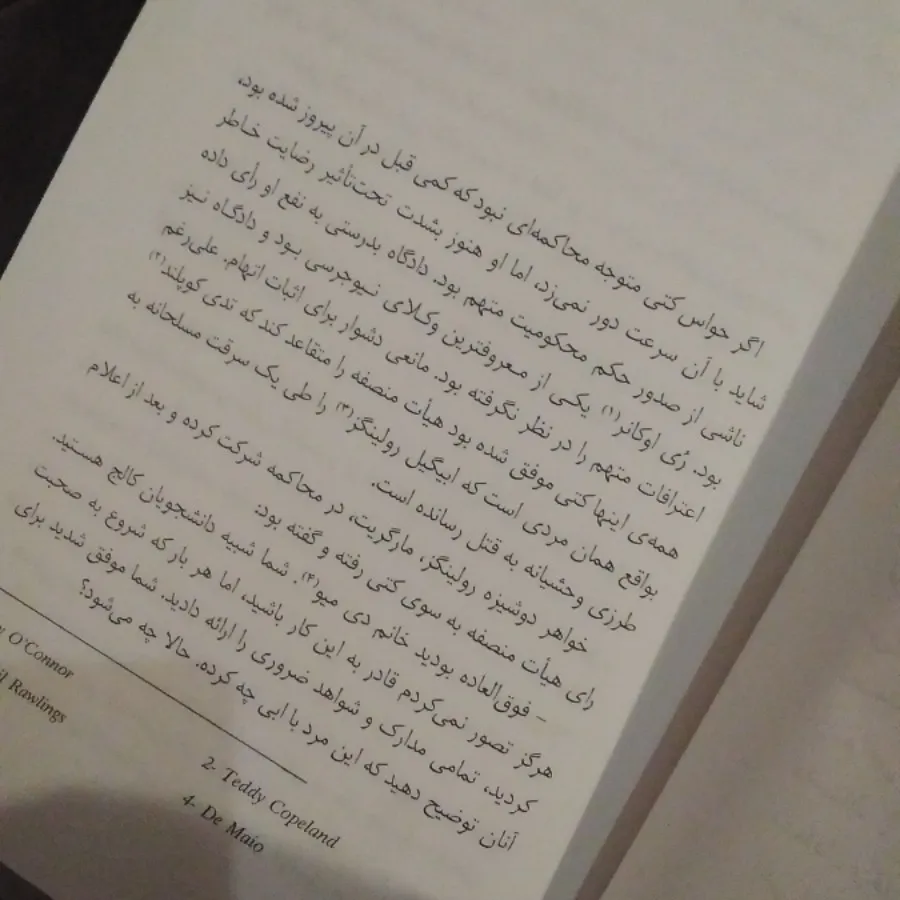 اگر حواس کتی متوجه محاکمه‌ای نبود که کمی قبل در آن پیروز شده بود،
شاید با آن سرعت دور نمی‌زد، اما او هنوز بشدت تحت‌تأثیر رضایت خاطر
ناشی از صدور حکم محکومیت متهم بود. دادگاه بدرستی به نفع او رأی داده
بود. رُی اوکانر(۱) یکی از معروفترین وکلای نیوجرسی بود و دادگاه نیز
اعترافات متهم را در نظر نگرفته بود. مانعی دشوار برای اثبات اتهام. علی‌رغم
همه‌ی اینها کتی موفق شده بود هیأت منصفه را متقاعد کند که تدی کوپلند(۲)
بواقع همان مردی است که ابیگیل رولینگز(۳) را طی یک سرقت مسلحانه به
طرزی وحشیانه به قتل رسانده است.
خواهر دوشیزه رولینگز، مارگریت، در محاکمه شرکت کرده و بعد از اعلام
رای هیأت منصفه به سوی کتی رفته و گفته بود:
- فوق‌العاده بودید خانم دی میو(۴). شما شبیه دانشجویان کالج هستید.
هرگز تصور نمی‌کردم قادر به این کار باشید، اما هر بار که شروع به صحبت
کردید، تمامی مدارک و شواهد ضروری را ارائه دادید. شما موفق شدید برای
آنان توضیح دهید که این مرد با ابی چه کرده. حالا چه می‌شود؟
O'Connor
2- Teddy Copeland
Rawlings
4- De Maio